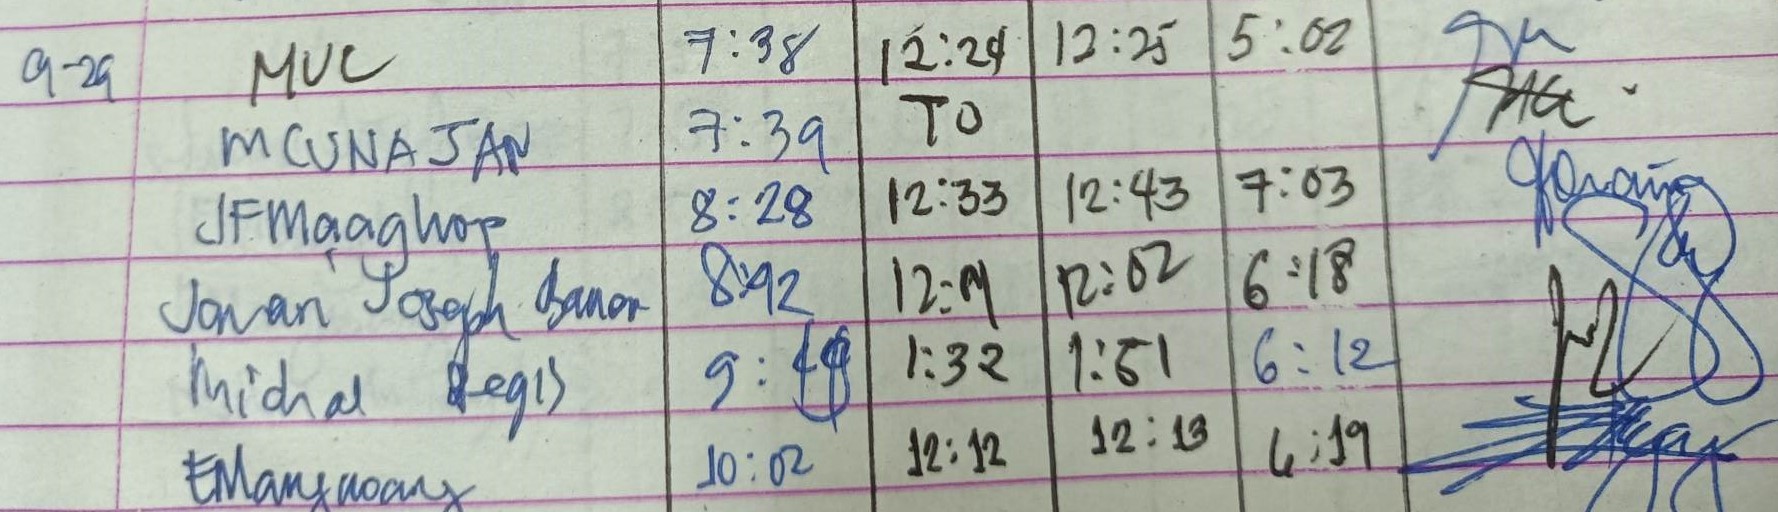 9-29 MUC 7:38 12:24 12:25 5:02
MCUNAJAN 7:39 TO
JFMaaghop 8:28 12:33 12:43 7:03
Jovan Joseph 8:42 12:02 6:18
Michal Regis 9: 1:32 1:51 6:12
10:02 12:12 12:13 6:19